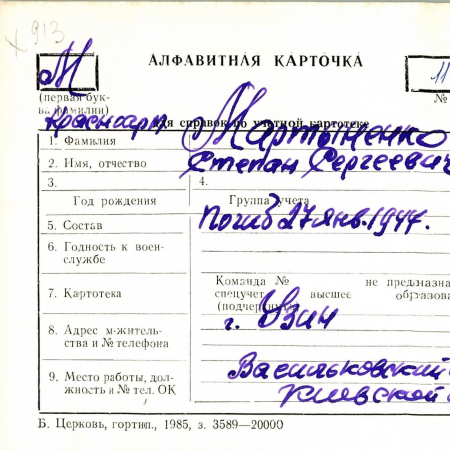 х 913
АЛФАВИТНАЯ КАРТОЧКА
М
11
(первая бук-
ва фамилии)
№
для справок по учетной картотеке
1. Фамилия Мартыненко
2. Имя, отчество Степан Сергеевич
3.
4.
Год рождения
Группа учета
5. Состав Погиб 27 янв. 1944г.
6. Годность к воен-
службе
Команда № не предназна
7. Картотека спецучет высшее образова
(подчеркнуть)
г. Узин
8. Адрес м-житель-
ства и № телефона
Васильковский
9. Место работы, дол-
жность и № тел. ОК
Киевской
Б. Церковь, гортип., 1985, з. 3589—20000